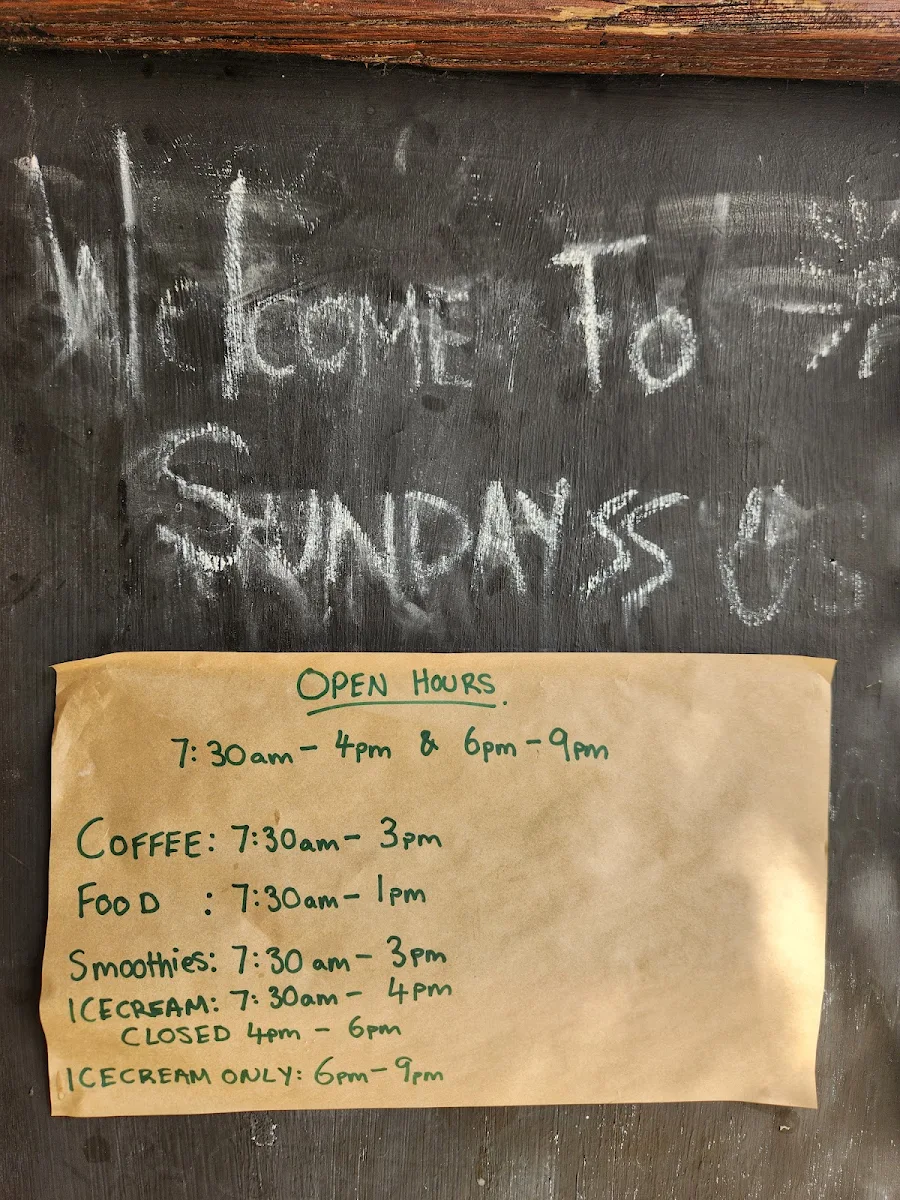 Welcome To
SUNDAYSS
OPEN HOURS.
7:30am - 4pm & 6pm - 9pm
COFFEE: 7:30am - 3pm
FOOD : 7:30am - 1pm
Smoothies: 7:30 am - 3pm
ICECREAM: 7:30am - 4pm
CLOSED 4pm - 6pm
ICECREAM ONLY: 6pm - 9pm